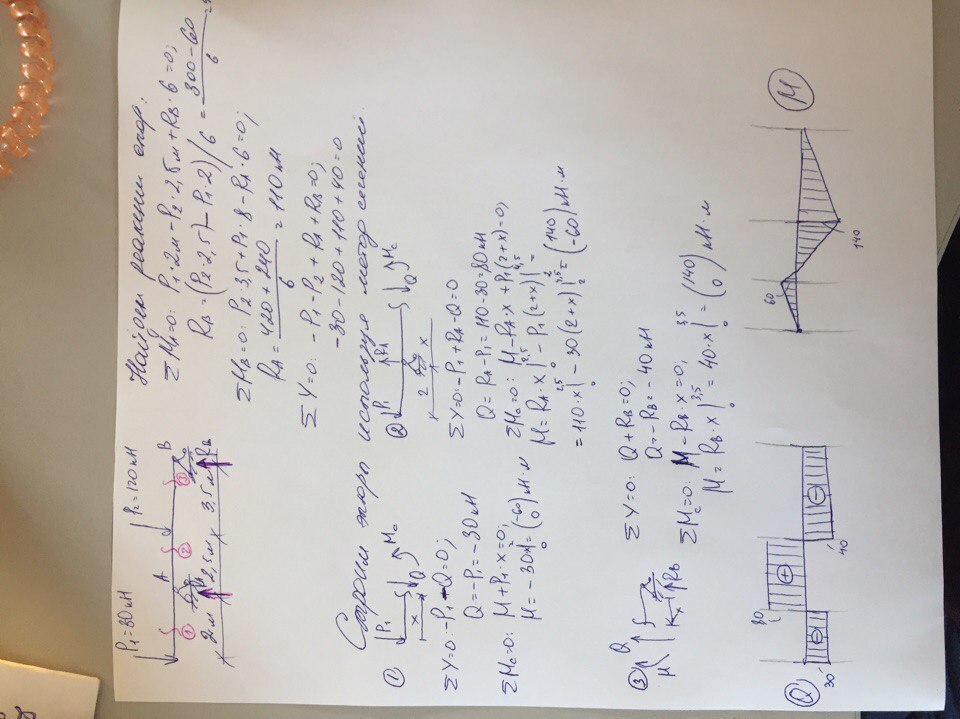 P₁=30 кН
P₂=120 кН
A
B
①
②
③
2м
2,5м
3.5м
R_B
Найдём реакции опор:
ΣM_A=0: P₁·2м-P₂·2,5м+R_B·6=0;
R_B=(P₂·2,5)-P₁·2)/6 = 300-60/6 =
ΣM_B=0: P₂·3,5+P₁·8-R_A·6=0;
R_A= 420+240/6 =110кН
ΣY=0: -P₁-P₂+R_A+R_B=0;
-30-120+110+40=0
Строим эпюры используя метод сечений
①
P₁
x
Q
M_c
ΣY=0: -P₁-Q=0;
Q=-P₁=-30кН
ΣM_c=0: M+P₁·x=0;
M=-30x|₀²=(-60 0)кН·м
②
P₁
R_A
2
x
Q
M_c
ΣY=0: -P₁+R_A-Q=0
Q=R_A-P₁=110-30=80кН
ΣM_c=0: M-R_A·x+P₁(2+x)=0;
M=R_A·x|₀^2,5-P₁(2+x)|₂^4,5=
=110·x|₀^2,5-30(2+x)|₂^3,5=(140 -60)кН·м
③
Q
M
x
R_B
ΣY=0: Q+R_B=0;
Q=-R_B=-40кН
ΣM_c=0: M-R_B·x=0;
M=R_B·x|₀^3,5=40·x|₀^3,5=(140 0)кН·м
Q
30
80
40
M
60
140